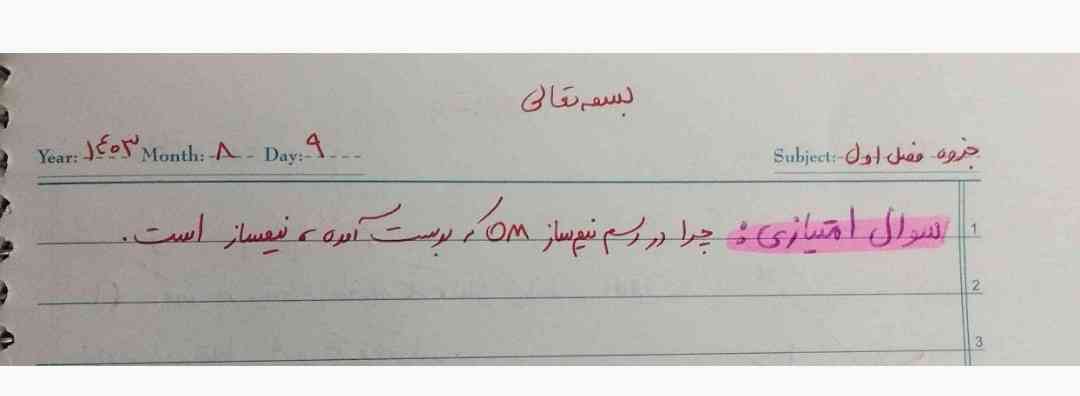 بسمه تعالی
Year: ۱۴۰۳ Month: ۸ Day: ۹
Subject: جزوه فصل اول
1 سوال امتیازی: چرا در رسم نیم‌ساز OM که بدست آمده، نیمساز است.
2
3